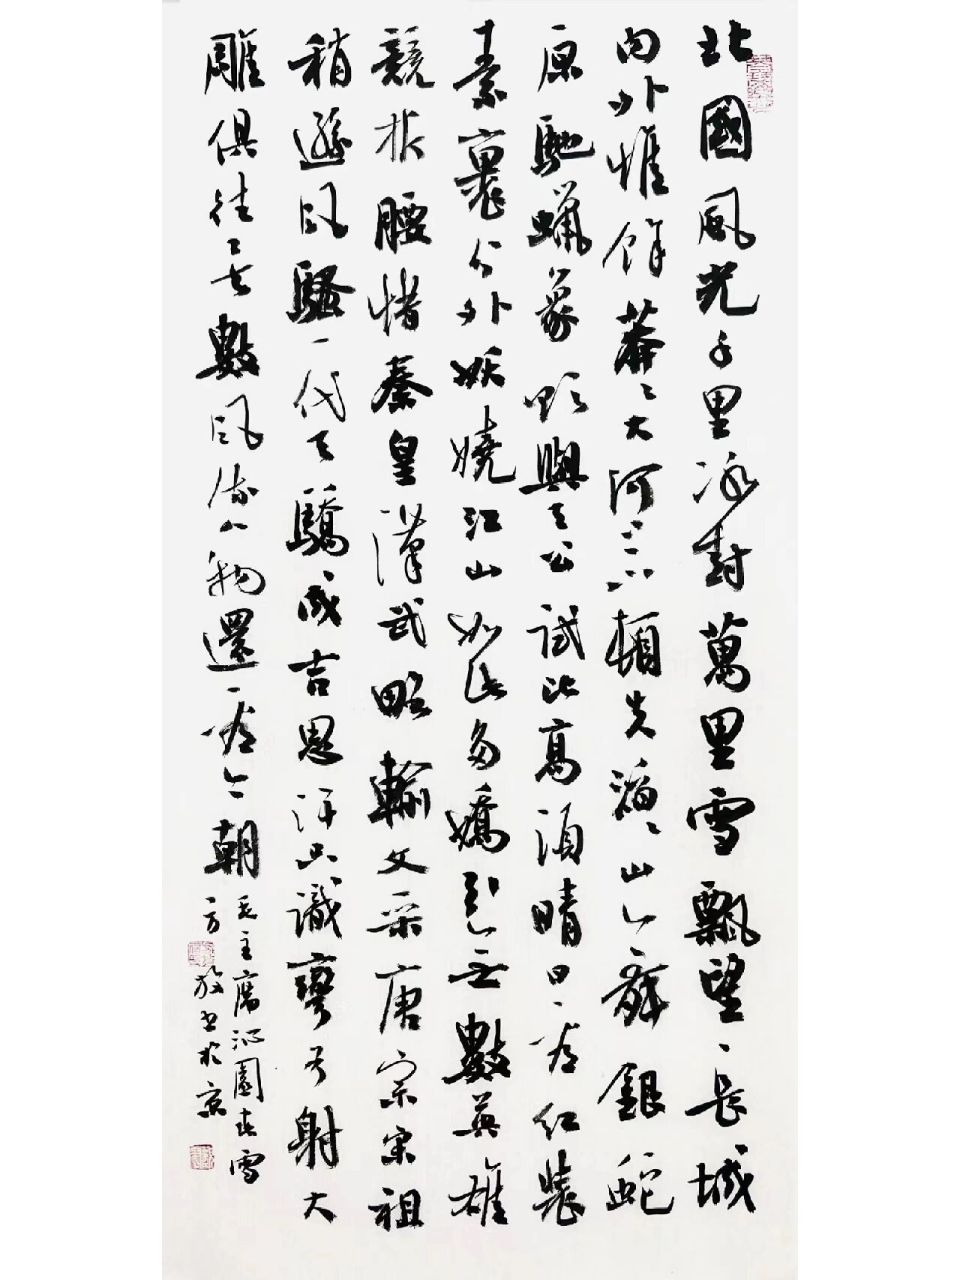 北國風光千里冰封萬里雪飄望長城
內外惟餘莽々大河上下頓失滔々山舞銀蛇
原馳蠟象欲與天公試比高須晴日看紅裝
素裹分外妖嬈江山如此多嬌引無數英雄
競折腰惜秦皇漢武略輸文采唐宗宋祖
稍遜風騷一代天驕成吉思汗只識彎弓射大
雕俱往矣數風流人物還看今朝
毛主席沁園春雪
方放書於京